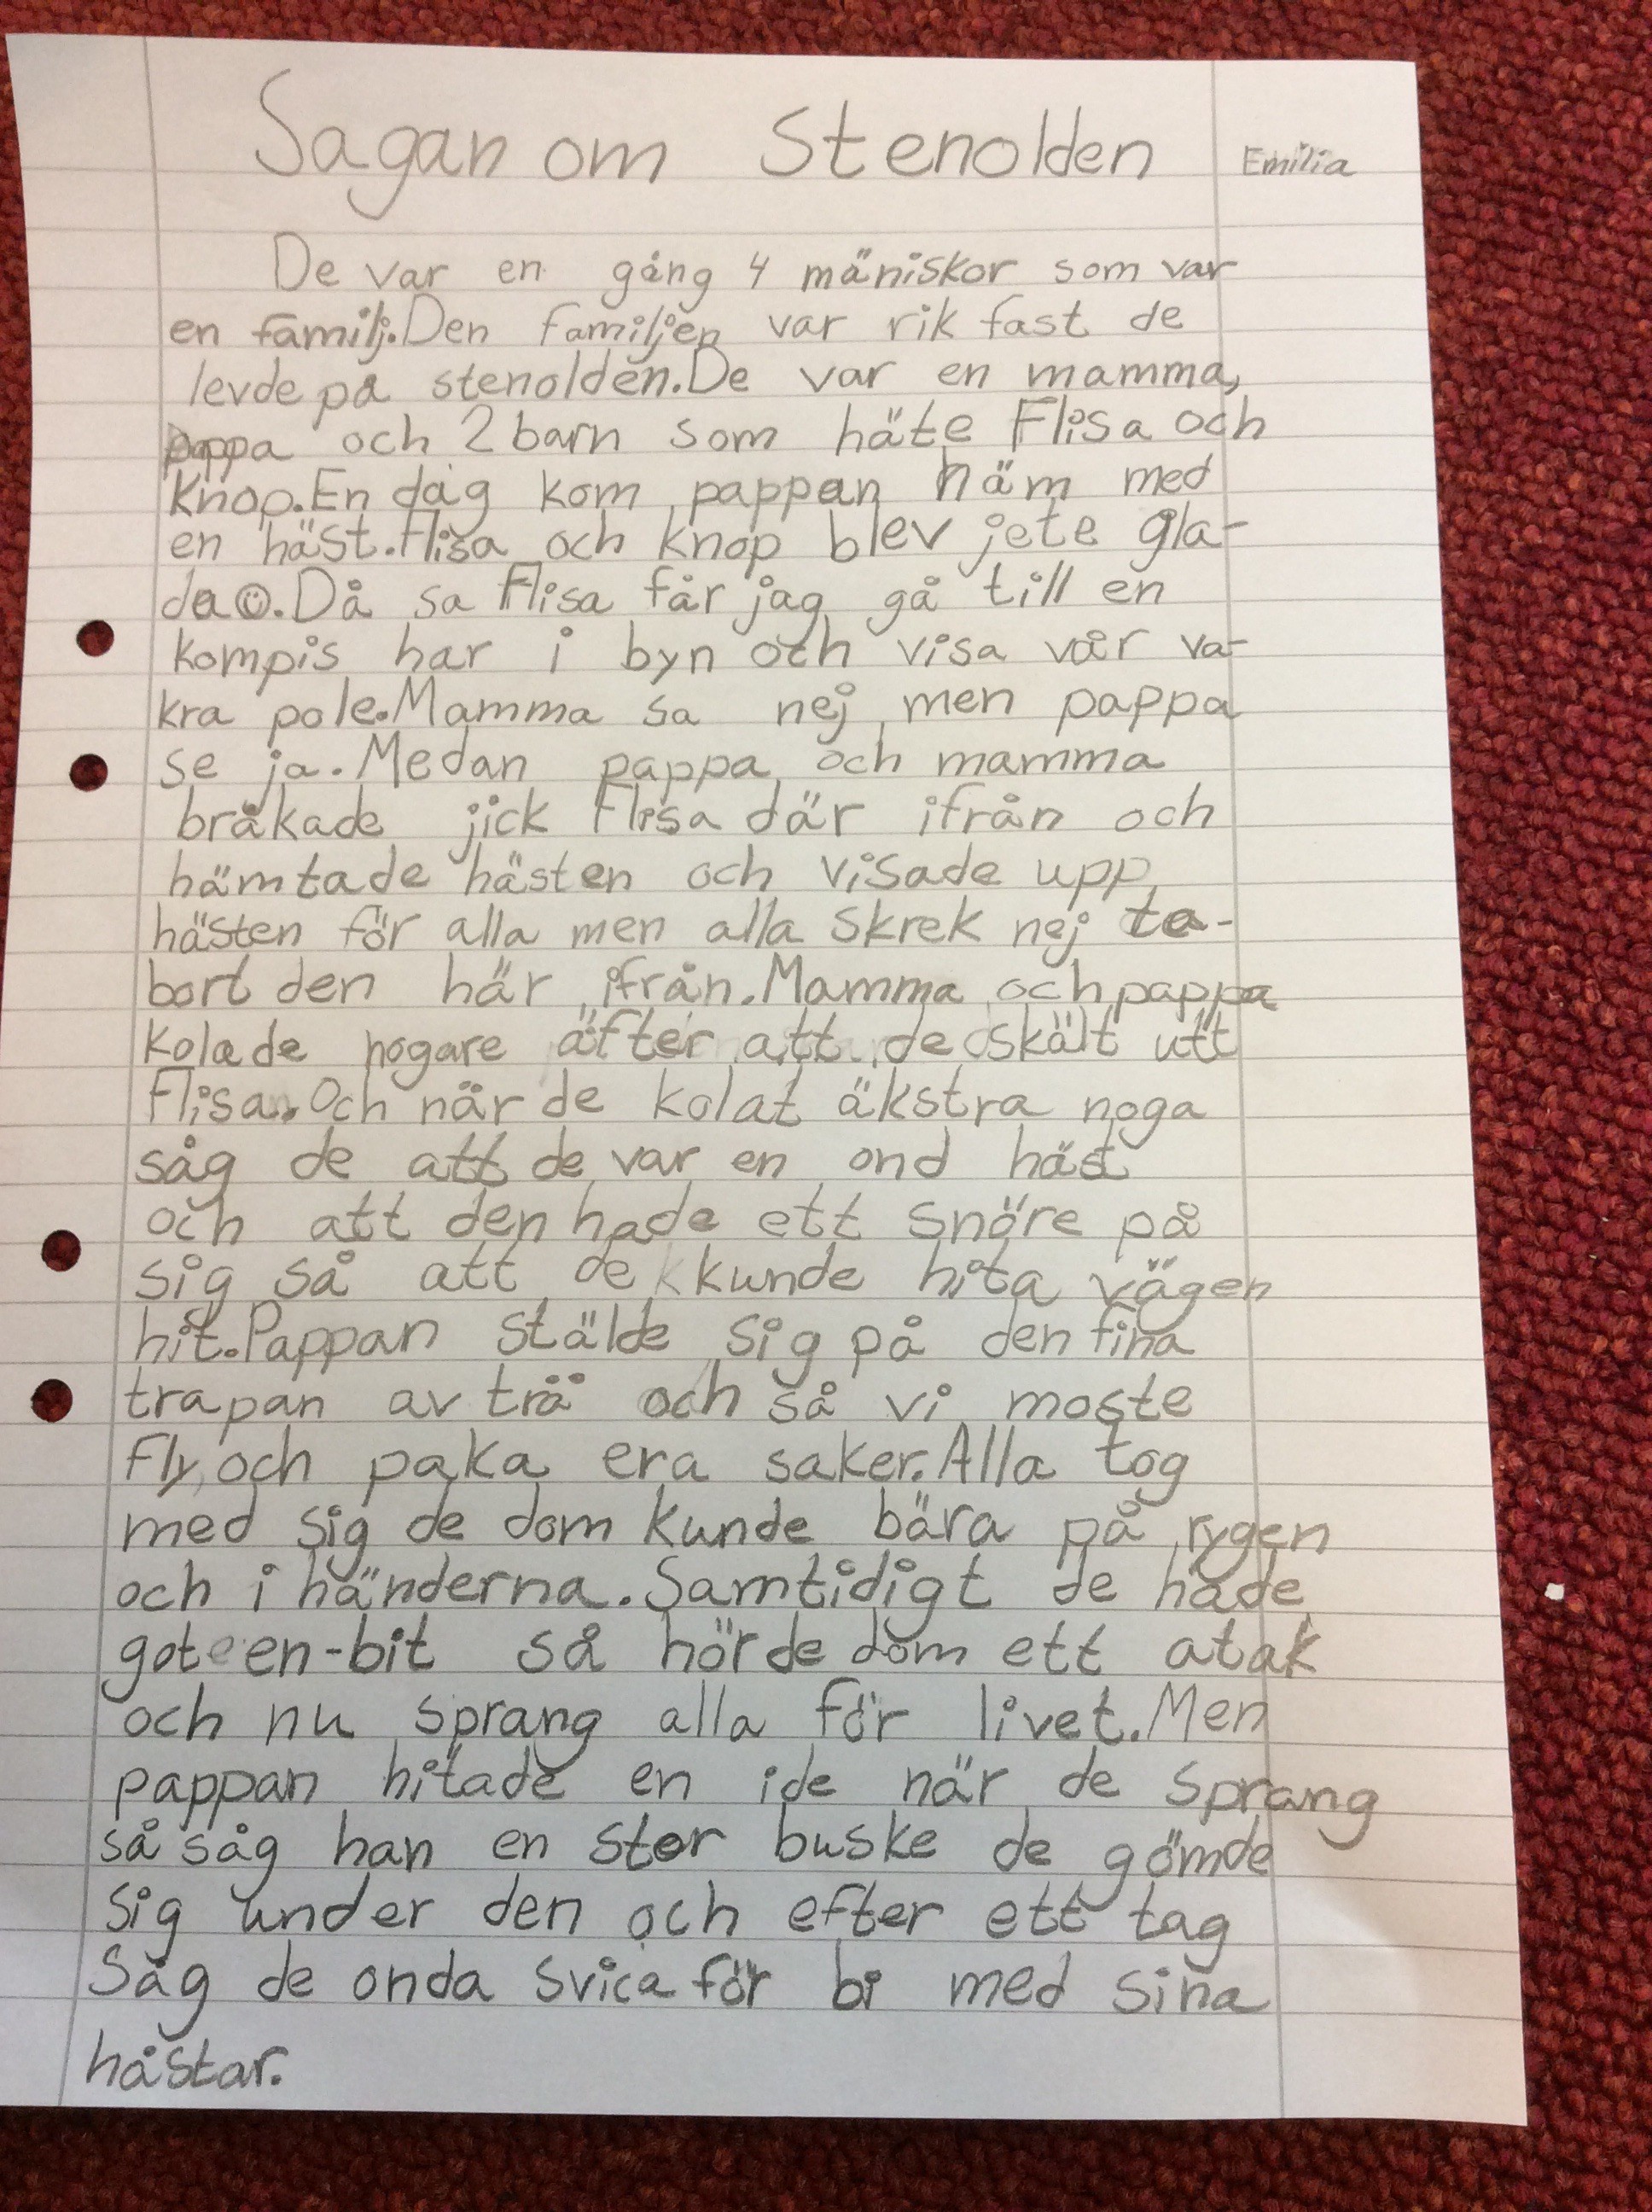 Sagan om Stenolden
Emilia
De var en gång 4 mäniskor som var
en familj. Den familjen var rik fast de
levde på stenolden. De var en mamma,
pappa och 2 barn som häte Flisa och
Knop. En dag kom pappan häm med
en häst. Flisa och Knop blev jete gla-
da☺. Då sa Flisa får jag gå till en
kompis har i byn och visa vår va-
kra pole. Mamma sa nej men pappa
se ja. Medan pappa och mamma
bråkade jick Flisa där ifrån och
hämtade hästen och visade upp
hästen för alla men alla skrek nej ta-
bort den här ifrån. Mamma och pappa
kolade nogare äfter att de skält utt
Flisa. Och när de kolat äkstra noga
såg de att de var en ond häst
och att den hade ett snöre på
sig så att de kunde hita vägen
hit. Pappan stälde sig på den fina
trapan av trä och så vi moste
fly och paka era saker. Alla tog
med sig de dom kunde bära på rygen
och i händerna. Samtidigt de hade
got en-bit så hörde dom ett atak
och nu sprang alla för livet. Men
pappan hitade en ide när de sprang
så såg han en stor buske de gömde
sig under den och efter ett tag
Såg de onda svica för bi med sina
hästar.